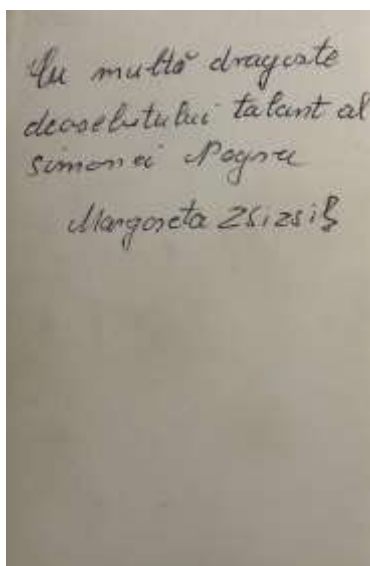 Cu multă dragoste
deosebitului talant al
simonei Negru
Margareta Zsizsik